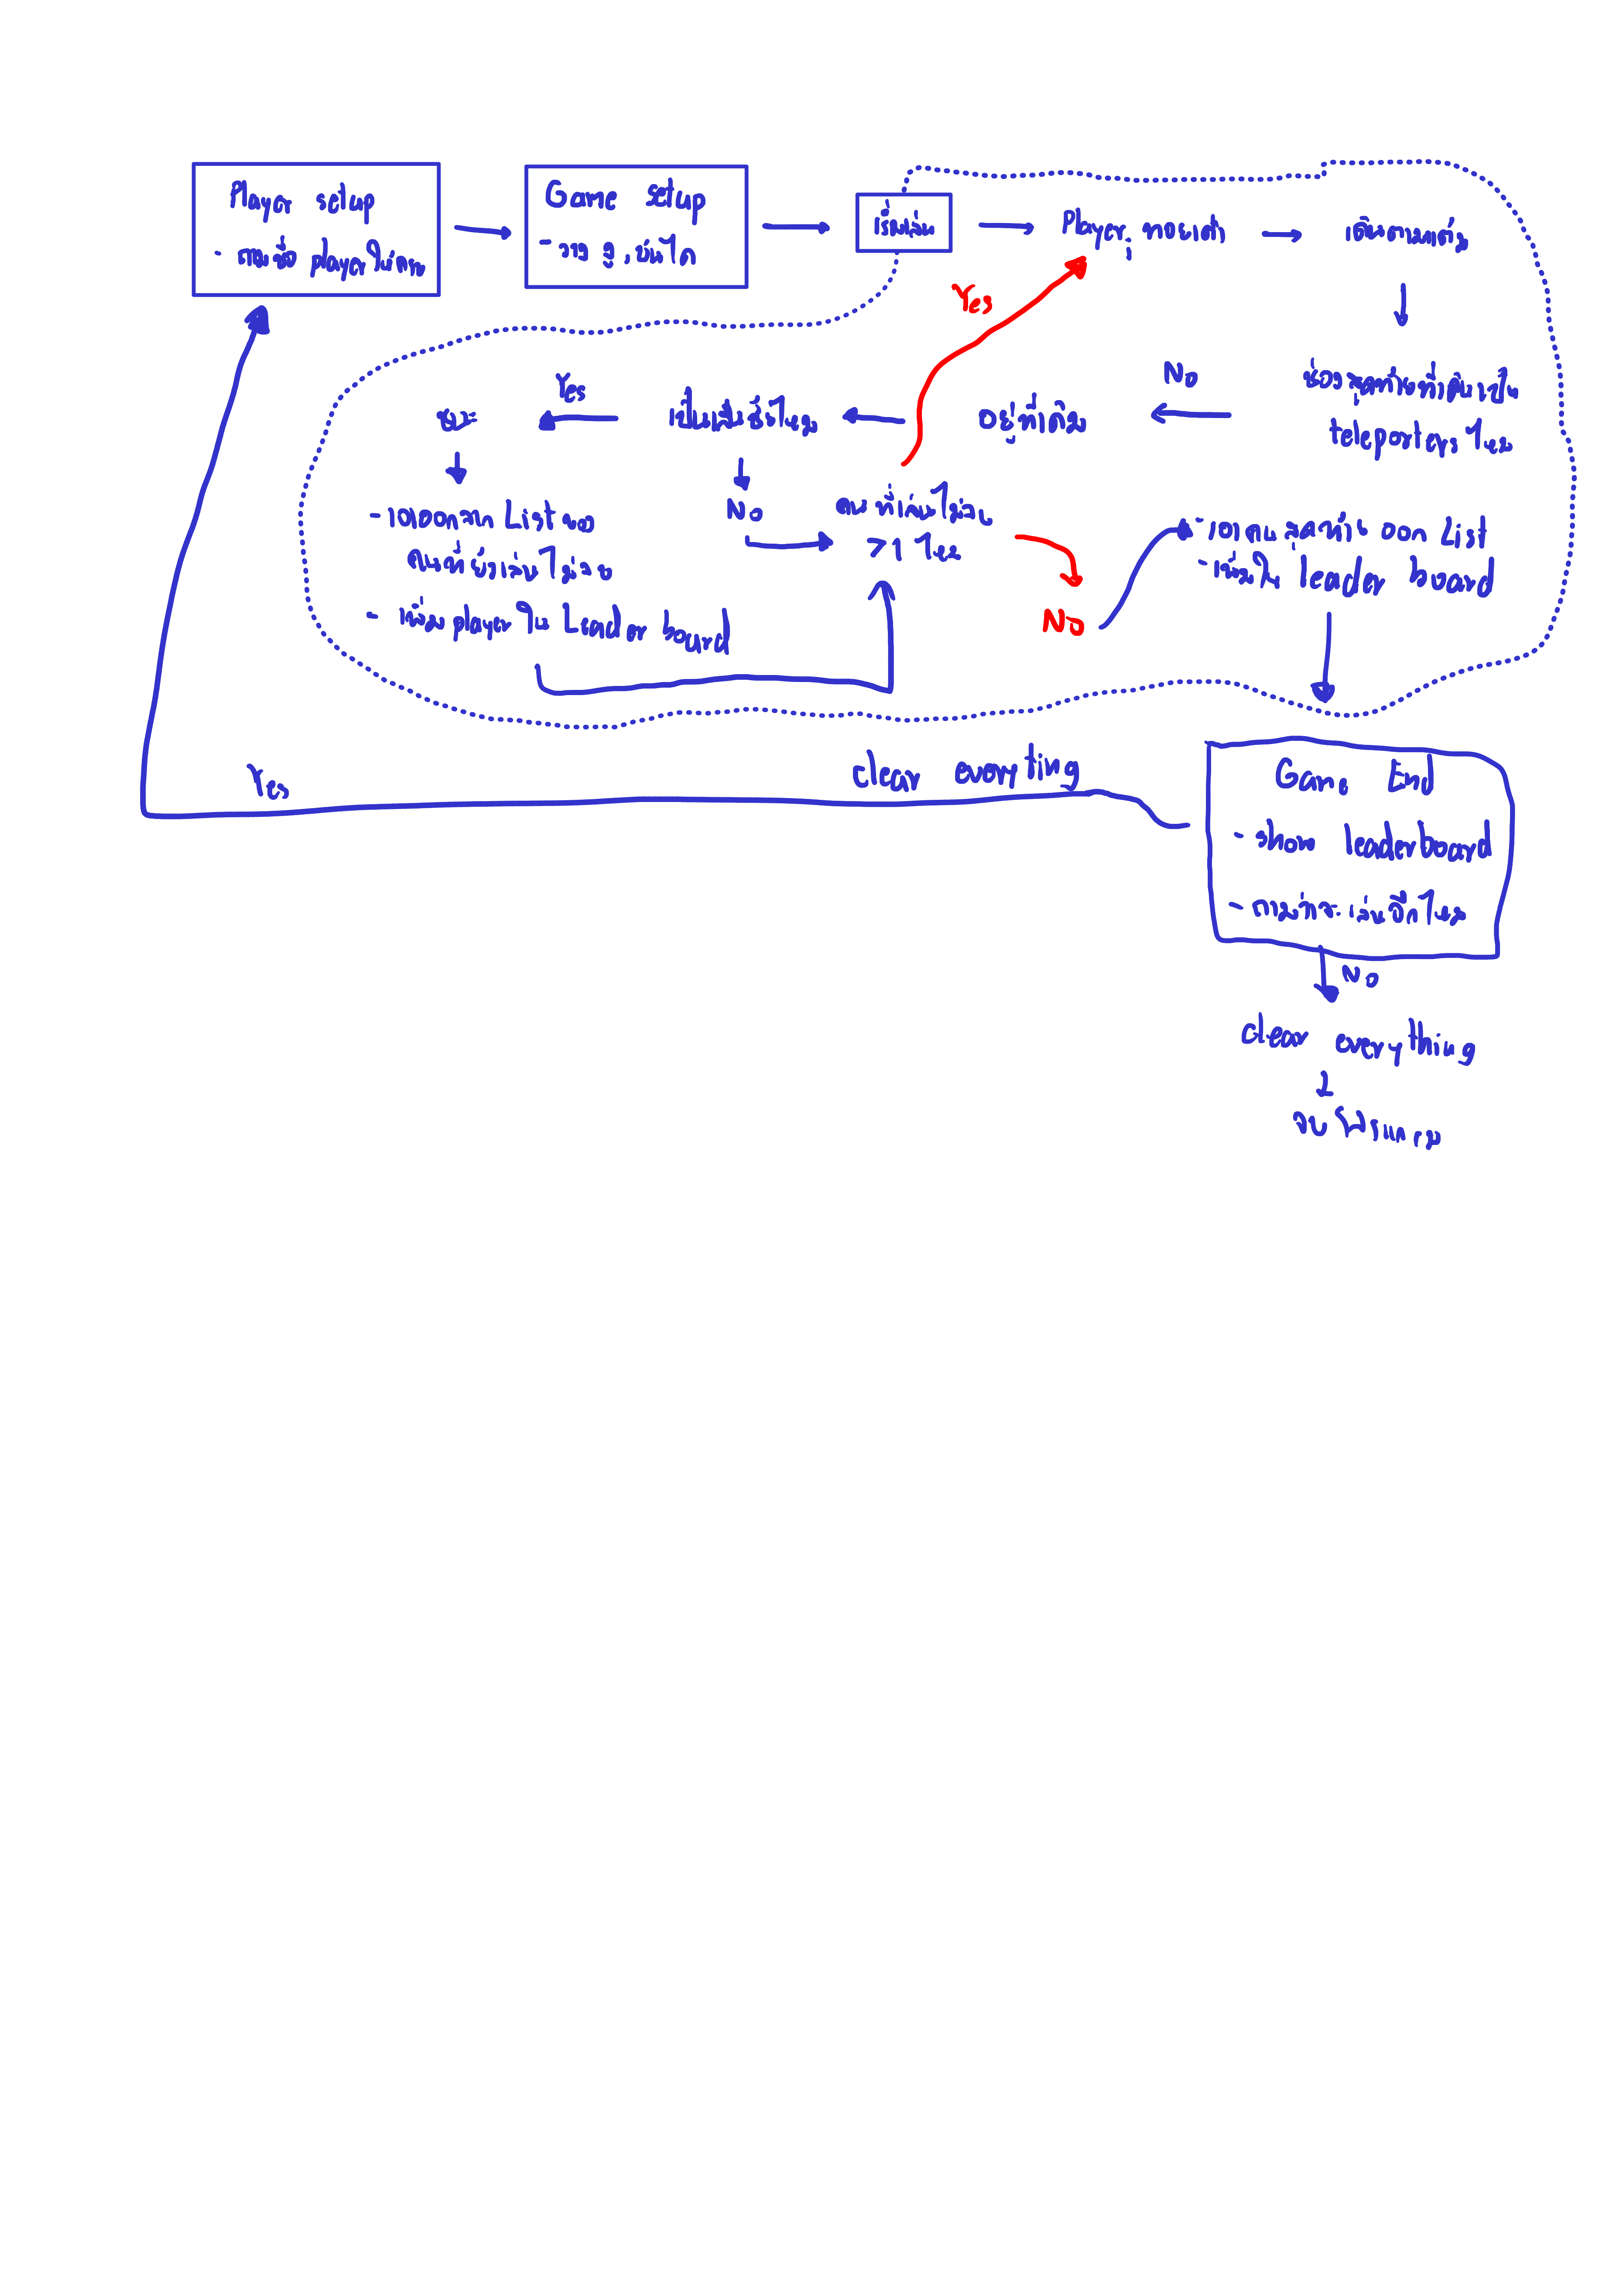 Player setup
- ถามชื่อ player ให้ครบ
Game setup
- วาง งู , บันได
เริ่มเล่น
Player; ทอยเต๋า
เดินตามแต้ม
Yes
ช่องสุดท้ายที่เดินเป็น
teleporters ไหม
No
อยู่ที่เดิม
เป็นเส้นชัยไหม
Yes
ชนะ
- เอาออกจาก List ของ
คนที่ยังเล่นไม่จบ
- เพิ่ม player ใน Leader board
No
คนที่เล่นไม่จบ
>1 ไหม
No
- เอาคนสุดท้าย ออก List
- เพิ่มใน leader board
Yes
clear everyting
Game End
- show leaderboard
- ถามว่าจะเล่นอีกไหม
No
clear everything
จบโปรแกรม